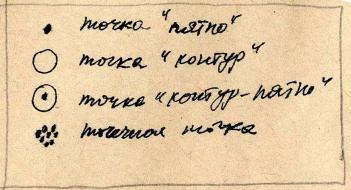 точка "пятно"
точка "контур"
точка "контур-пятно"
точечная точка